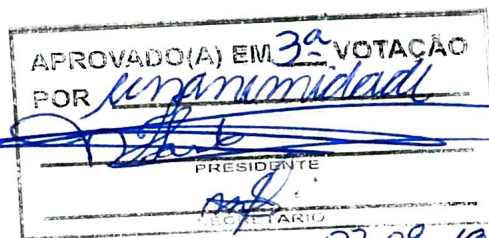 APROVADO(A) EM 3ª VOTAÇÃO
POR unanimidade
PRESIDENTE
SECRETARIO